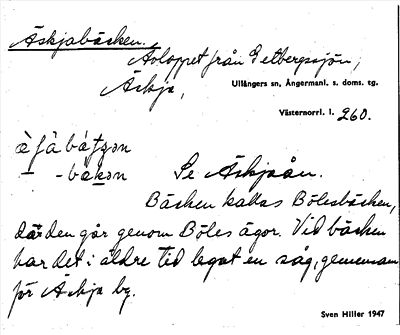 Äskjabäcken.
Avloppet från Getbergssjön,
Äskja,
Ullångers sn, Ångermanl. s. doms. tg.
Västernorrl. l. 260.
Se Äskjaån.
Bäcken kallas Bölesbäcken,
där den går genom Böles ägor. Vid bäcken
har det i äldre tid legat en såg, gemensam
för Äskja by.
Sven Hiller 1947